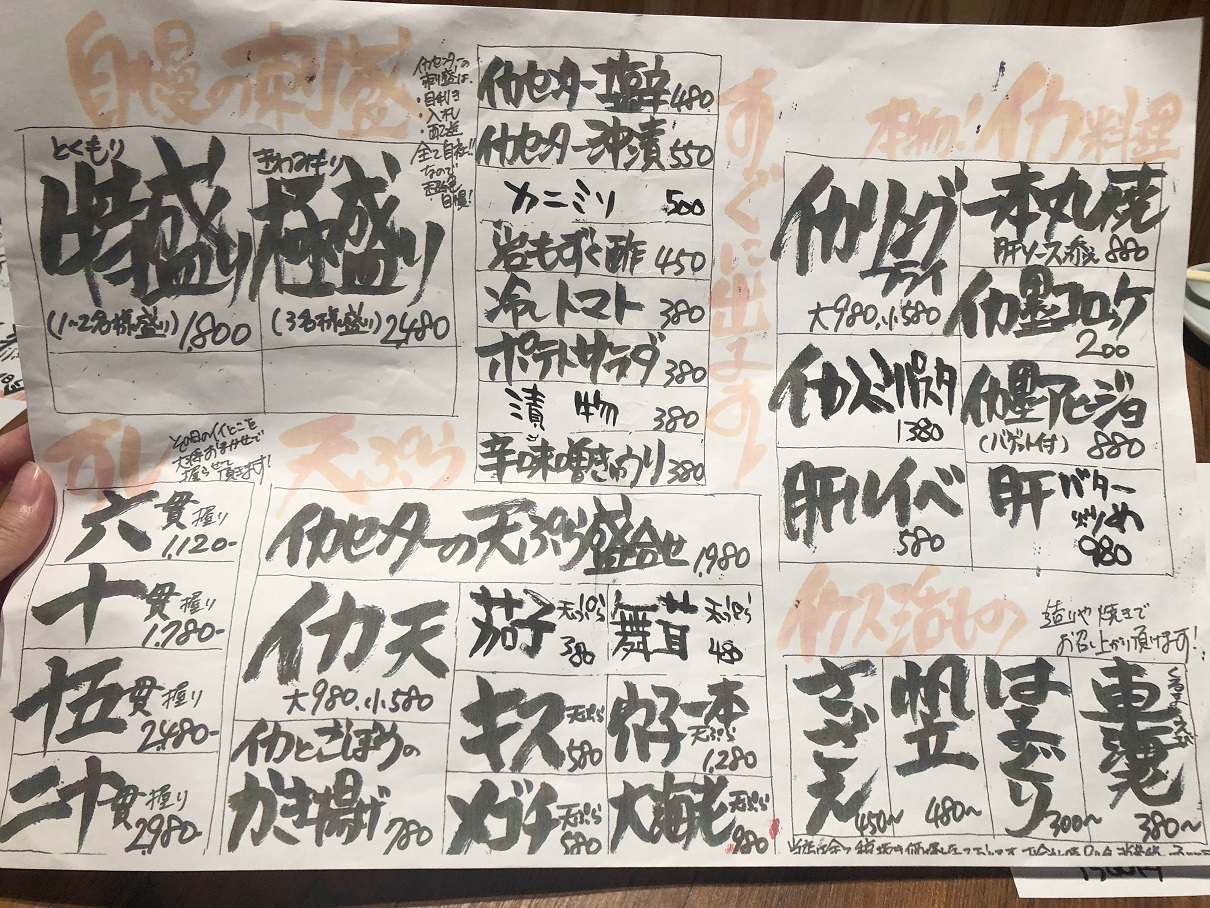 自慢の刺盛
イカセンターの
刺盛は、
・目利き
・入札
・配送
全て自社!!
なので
自慢!
とくもり
特盛り
(1~2名様盛り) 1,800
きわみもり
極盛り
(3名様盛り) 2,480
すぐに出ます
イカセンター塩辛 480
イカセンター沖漬 550
カニミソ 500
岩もずく酢 450
冷しトマト 380
ポテトサラダ 380
漬物 380
辛味噌きゅうり 380
本物!イカ料理
イカリング
フライ
大980.小580
一本丸焼
肝ソース添え 880
イカ墨コロッケ
200
イカスミパスタ
1380
イカ墨アヒージョ
(バゲット付) 880
肝ルイベ
580
肝バター
炒め
980
すし
その日のイイとこを
大将おまかせで
握らせて頂きます!
六貫握り
1,120-
十貫握り
1,780-
十五貫握り
2,480-
二十貫握り
2,980-
天ぷら
イカセンターの天ぷら盛合せ 1,980
イカ天
大980.小580
茄子天ぷら
380
舞茸天ぷら
480
キス天ぷら
580
穴子一本
天ぷら
1,280
イカとごぼうの
かき揚げ 780
メゴチ天ぷら
580
大海老天ぷら
980
イケス活もの
造りや焼きで
お召し上がり頂けます!
さざえ
450~
帆立
480~
はまぐり
300~
くるまえび
車海老
380~